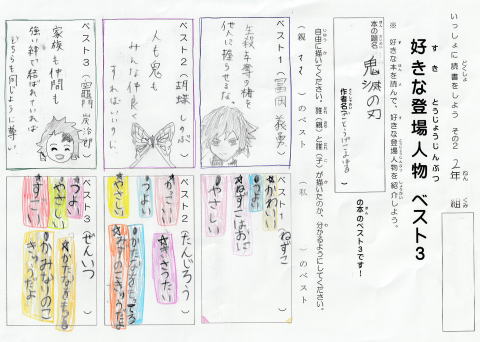 いっしょに読書をしよう その2
2年 組
好きな登場人物 ベスト3
※ 好きな本を読んで、好きな登場人物を紹介しよう。
本の題名
鬼滅の刃
作者名
ごとうげこよはる
の本のベスト3です!
自由に描いてください。誰(親)と誰(子)が描いたのか、分かるようにしてください。
(親 ママ )のベスト
(私 )のベスト
ベスト1(冨岡 義勇)
生殺与奪の権を
他人に握らせるな。
ベスト2(胡蝶 しのぶ)
人も鬼も
みんな仲良く
すればいいのに
ベスト3(竈門 炭治郎)
家族も仲間も
強い絆で結ばれていれば
どちらも同じように尊い
ベスト1(ねずこ)
かわいい
つよい
ねずこはおに
ベスト2(たんじろう)
かっこいい
つよい
やさしい
ベスト3(ぜんいつ)
つよい
やさしい
すごい